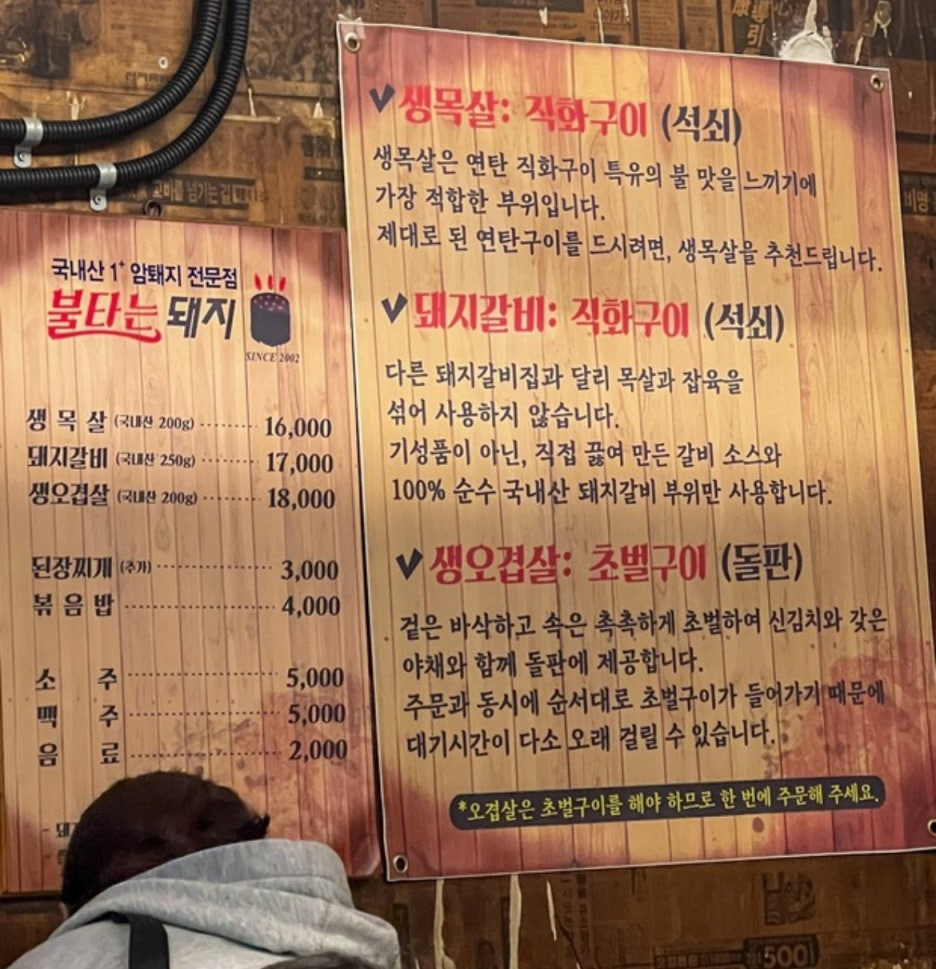 국내산 1+ 암퇘지 전문점
불타는 돼지
SINCE 2002
생목살 (국내산 200g) 16,000
돼지갈비 (국내산 250g) 17,000
생오겹살 (국내산 200g) 18,000
된장찌개 (추가) 3,000
볶음밥 4,000
소주 5,000
맥주 5,000
음료 2,000
생목살: 직화구이 (석쇠)
생목살은 연탄 직화구이 특유의 불 맛을 느끼기에
가장 적합한 부위입니다.
제대로 된 연탄구이를 드시려면, 생목살을 추천드립니다.
돼지갈비: 직화구이 (석쇠)
다른 돼지갈비집과 달리 목살과 잡육을
섞어 사용하지 않습니다.
기성품이 아닌, 직접 끓여 만든 갈비 소스와
100% 순수 국내산 돼지갈비 부위만 사용합니다.
생오겹살: 초벌구이 (돌판)
겉은 바삭하고 속은 촉촉하게 초벌하여 신김치와 갖은
야채와 함께 돌판에 제공합니다.
주문과 동시에 순서대로 초벌구이가 들어가기 때문에
대기시간이 다소 오래 걸릴 수 있습니다.
*오겹살은 초벌구이를 해야 하므로 한 번에 주문해 주세요.
500